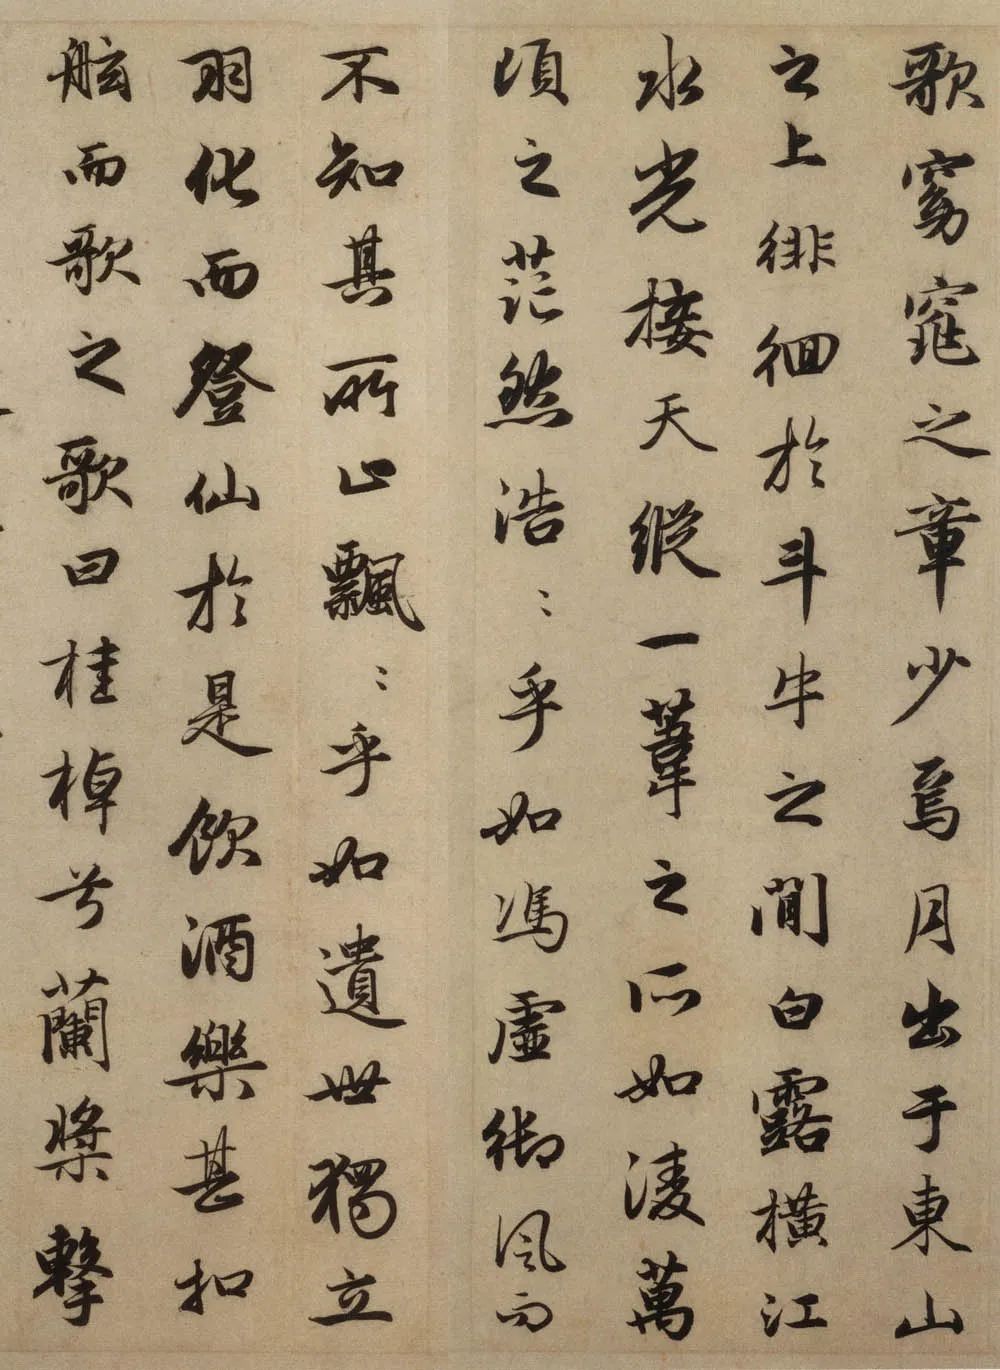 歌窈窕之章少焉月出于東山
之上徘徊於斗牛之間白露橫江
水光接天縱一葦之所如凌萬
頃之茫然浩〻乎如馮虛御風而
不知其所止飄〻乎如遺世獨立
羽化而登仙於是飲酒樂甚扣
舷而歌之歌曰桂棹兮蘭槳擊